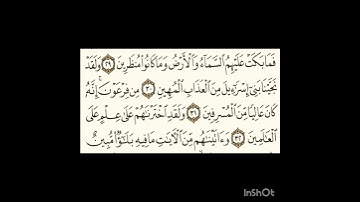 فَمَا بَكَتْ عَلَيْهِمُ ٱلسَّمَآءُ وَٱلْأَرْضُ وَمَا كَانُوا۟ مُنظَرِينَ ٢٩ وَلَقَدْ
نَجَّيْنَا بَنِىٓ إِسْرَٰٓءِيلَ مِنَ ٱلْعَذَابِ ٱلْمُهِينِ ٣٠ مِن فِرْعَوْنَ ۚ إِنَّهُۥ
كَانَ عَالِيًا مِّنَ ٱلْمُسْرِفِينَ ٣١ وَلَقَدِ ٱخْتَرْنَٰهُمْ عَلَىٰ عِلْمٍ عَلَى
ٱلْعَٰلَمِينَ ٣٢ وَءَاتَيْنَٰهُم مِّنَ ٱلْءَايَٰتِ مَا فِيهِ بَلَٰٓؤٌا۟ مُّبِينٌ
InShOt